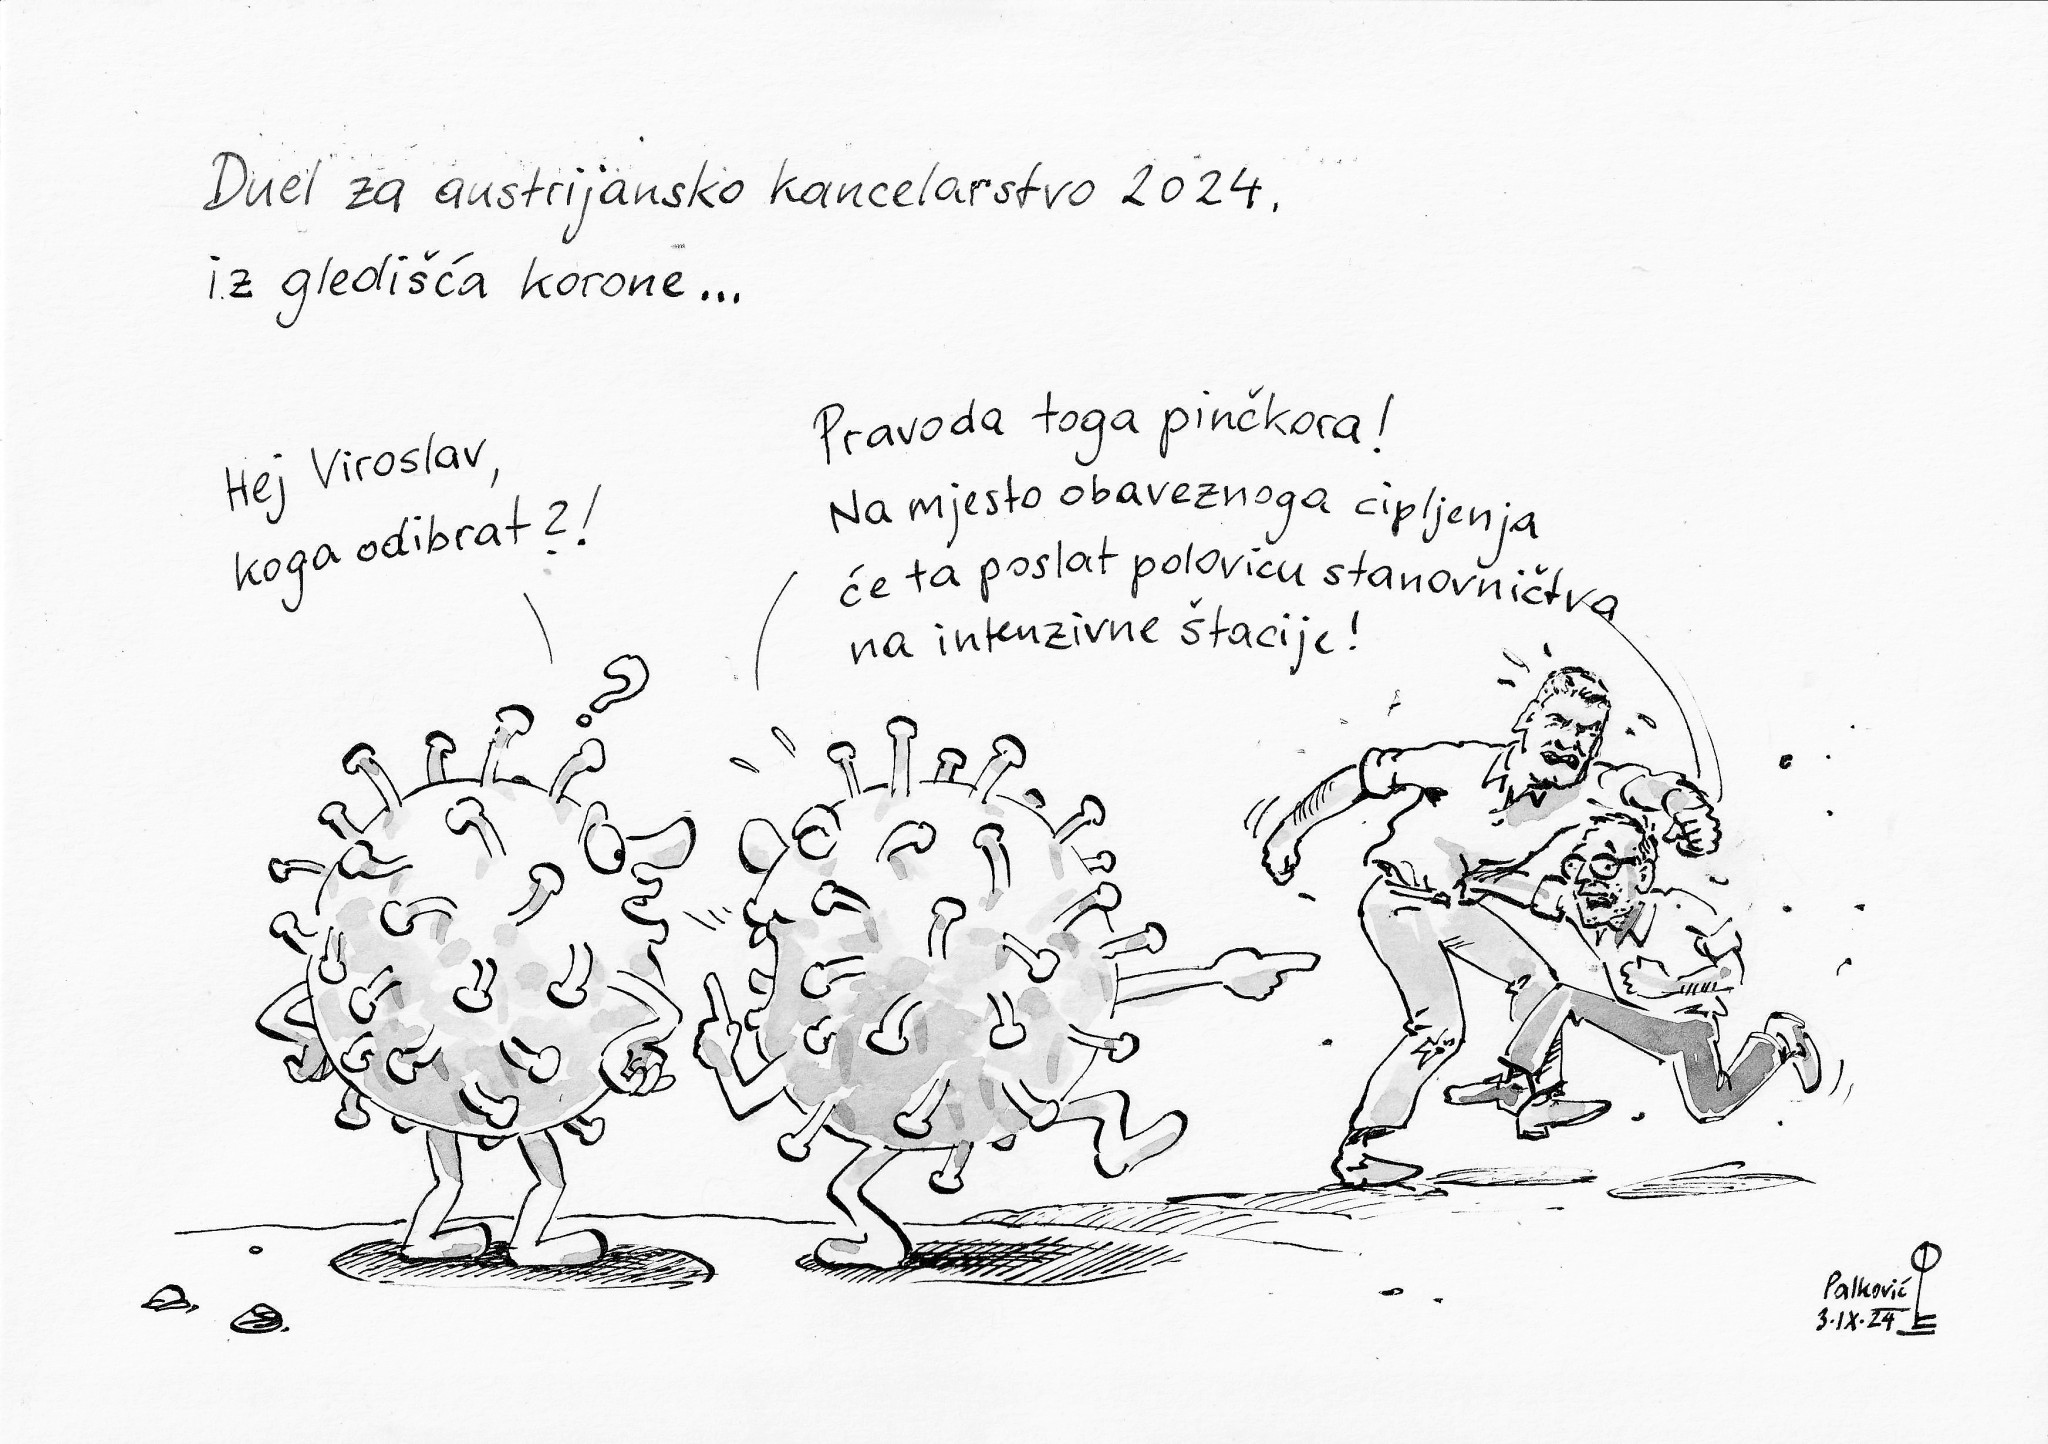 Duel za austrijansko kancelarstvo 2024.
iz gledišća korone...
Hej Viroslav,
koga odibrat?!
Pravoda toga pinčkora!
Na mjesto obaveznoga cipljenja
će ta poslat polovicu stanovničtva
na intenzivne štacije!
?
Palković
3·IX·24